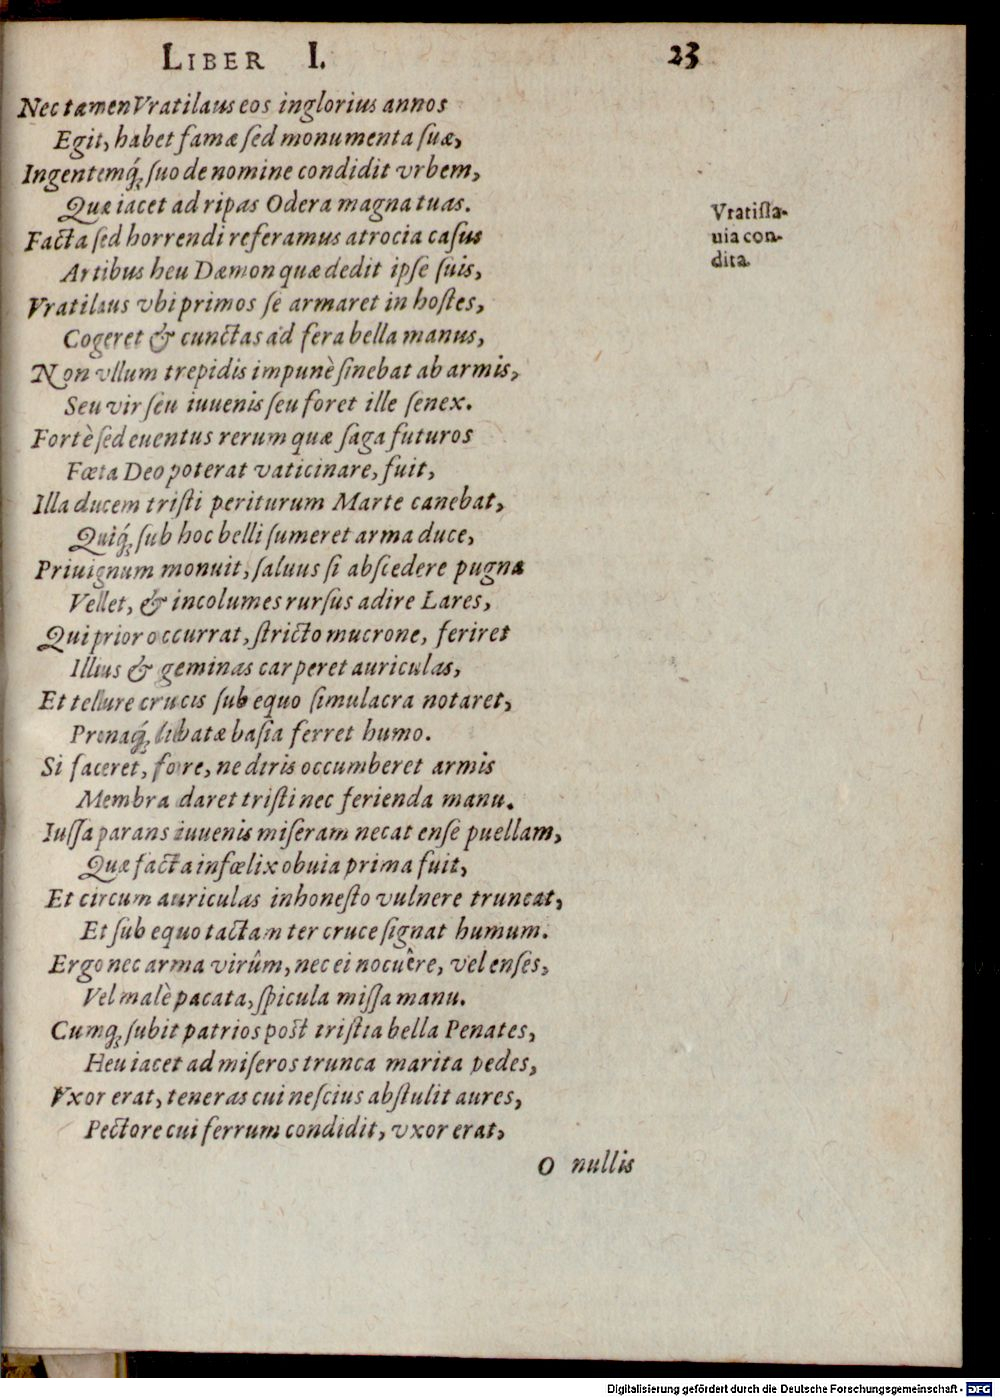 LIBER I. 23
Nec tamen Vratilaus eos inglorius annos
Egit, habet famæ ſed monumenta ſuæ,
Ingentemq́; ſuo de nomine condidit vrbem,
Quæ iacet ad ripas Odera magna tuas.
Vratiſla-
uia con-
dita.
Facta ſed horrendi referamus atrocia caſus
Artibus heu Dæmon quæ dedit ipſe ſuis,
Vratilaus vbi primos ſe armaret in hoſtes,
Cogeret & cunctas ad fera bella manus,
Non vllum trepidis impunè ſinebat ab armis,
Seu vir ſeu iuuenis ſeu foret ille ſenex.
Fortè ſed euentus rerum quæ ſaga futuros
Fœta Deo poterat vaticinare, fuit,
Illa ducem triſti periturum Marte canebat,
Quiq́; ſub hoc belli ſumeret arma duce,
Priuignum monuit, ſaluus ſi abſcedere pugna
Vellet, & incolumes rurſus adire Lares,
Qui prior occurrat, ſtricto mucrone, feriret
Illius & geminas carperet auriculas,
Et tellure crucis ſub equo ſimulacra notaret,
Pronaq́; libatæ baſia ferret humo.
Si faceret, fore, ne diris occumberet armis
Membra daret triſti nec ferienda manu.
Iuſſa parans iuuenis miſeram necat enſe puellam,
Quæ facta infœlix obuia prima fuit,
Et circum auriculas inhoneſto vulnere truncat,
Et ſub equo tactam ter cruce ſignat humum.
Ergo nec arma virûm, nec ei nocuêre, vel enſes,
Vel malè pacata, ſpicula miſſa manu.
Cumq; ſubit patrios poſt triſtia bella Penates,
Heu iacet ad miſeros trunca marita pedes,
Vxor erat, teneras cui neſcius abſtulit aures,
Pectore cui ferrum condidit, vxor erat,
O nullis
Digitalisierung gefördert durch die Deutsche Forschungsgemeinschaft - DFG